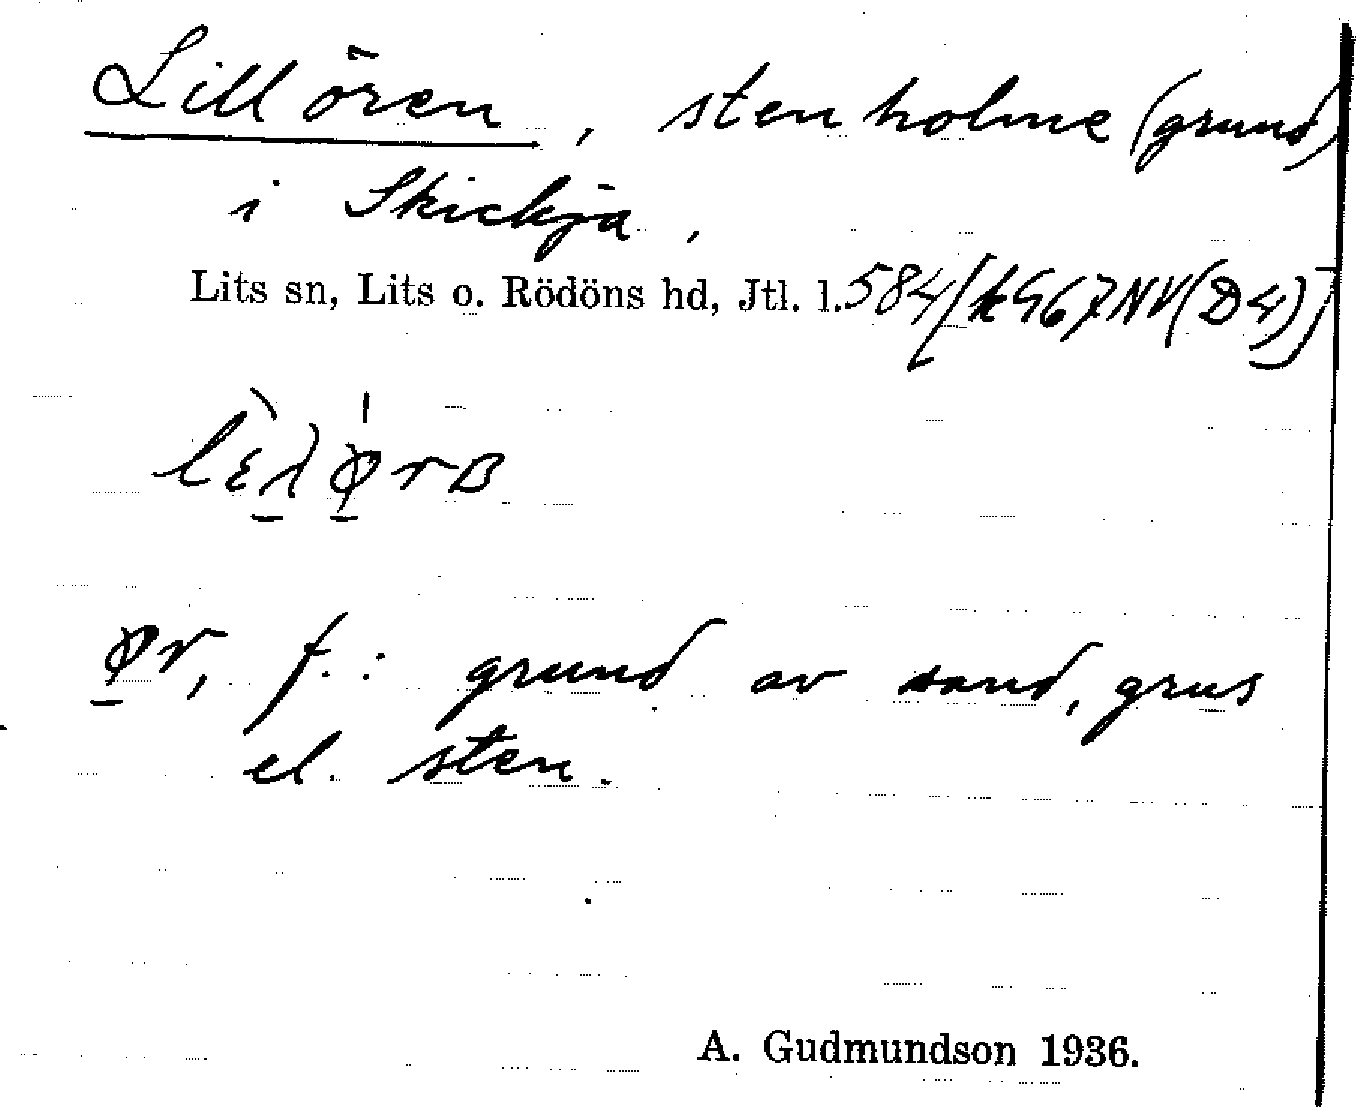 Lillören, stenholme (grund)
i Skickja,
Lits sn, Lits o. Rödöns hd, Jtl. l. 584 [k G67NV(D4)]
ør, f.: grund av sand, grus
el. sten.
A. Gudmundson 1936.